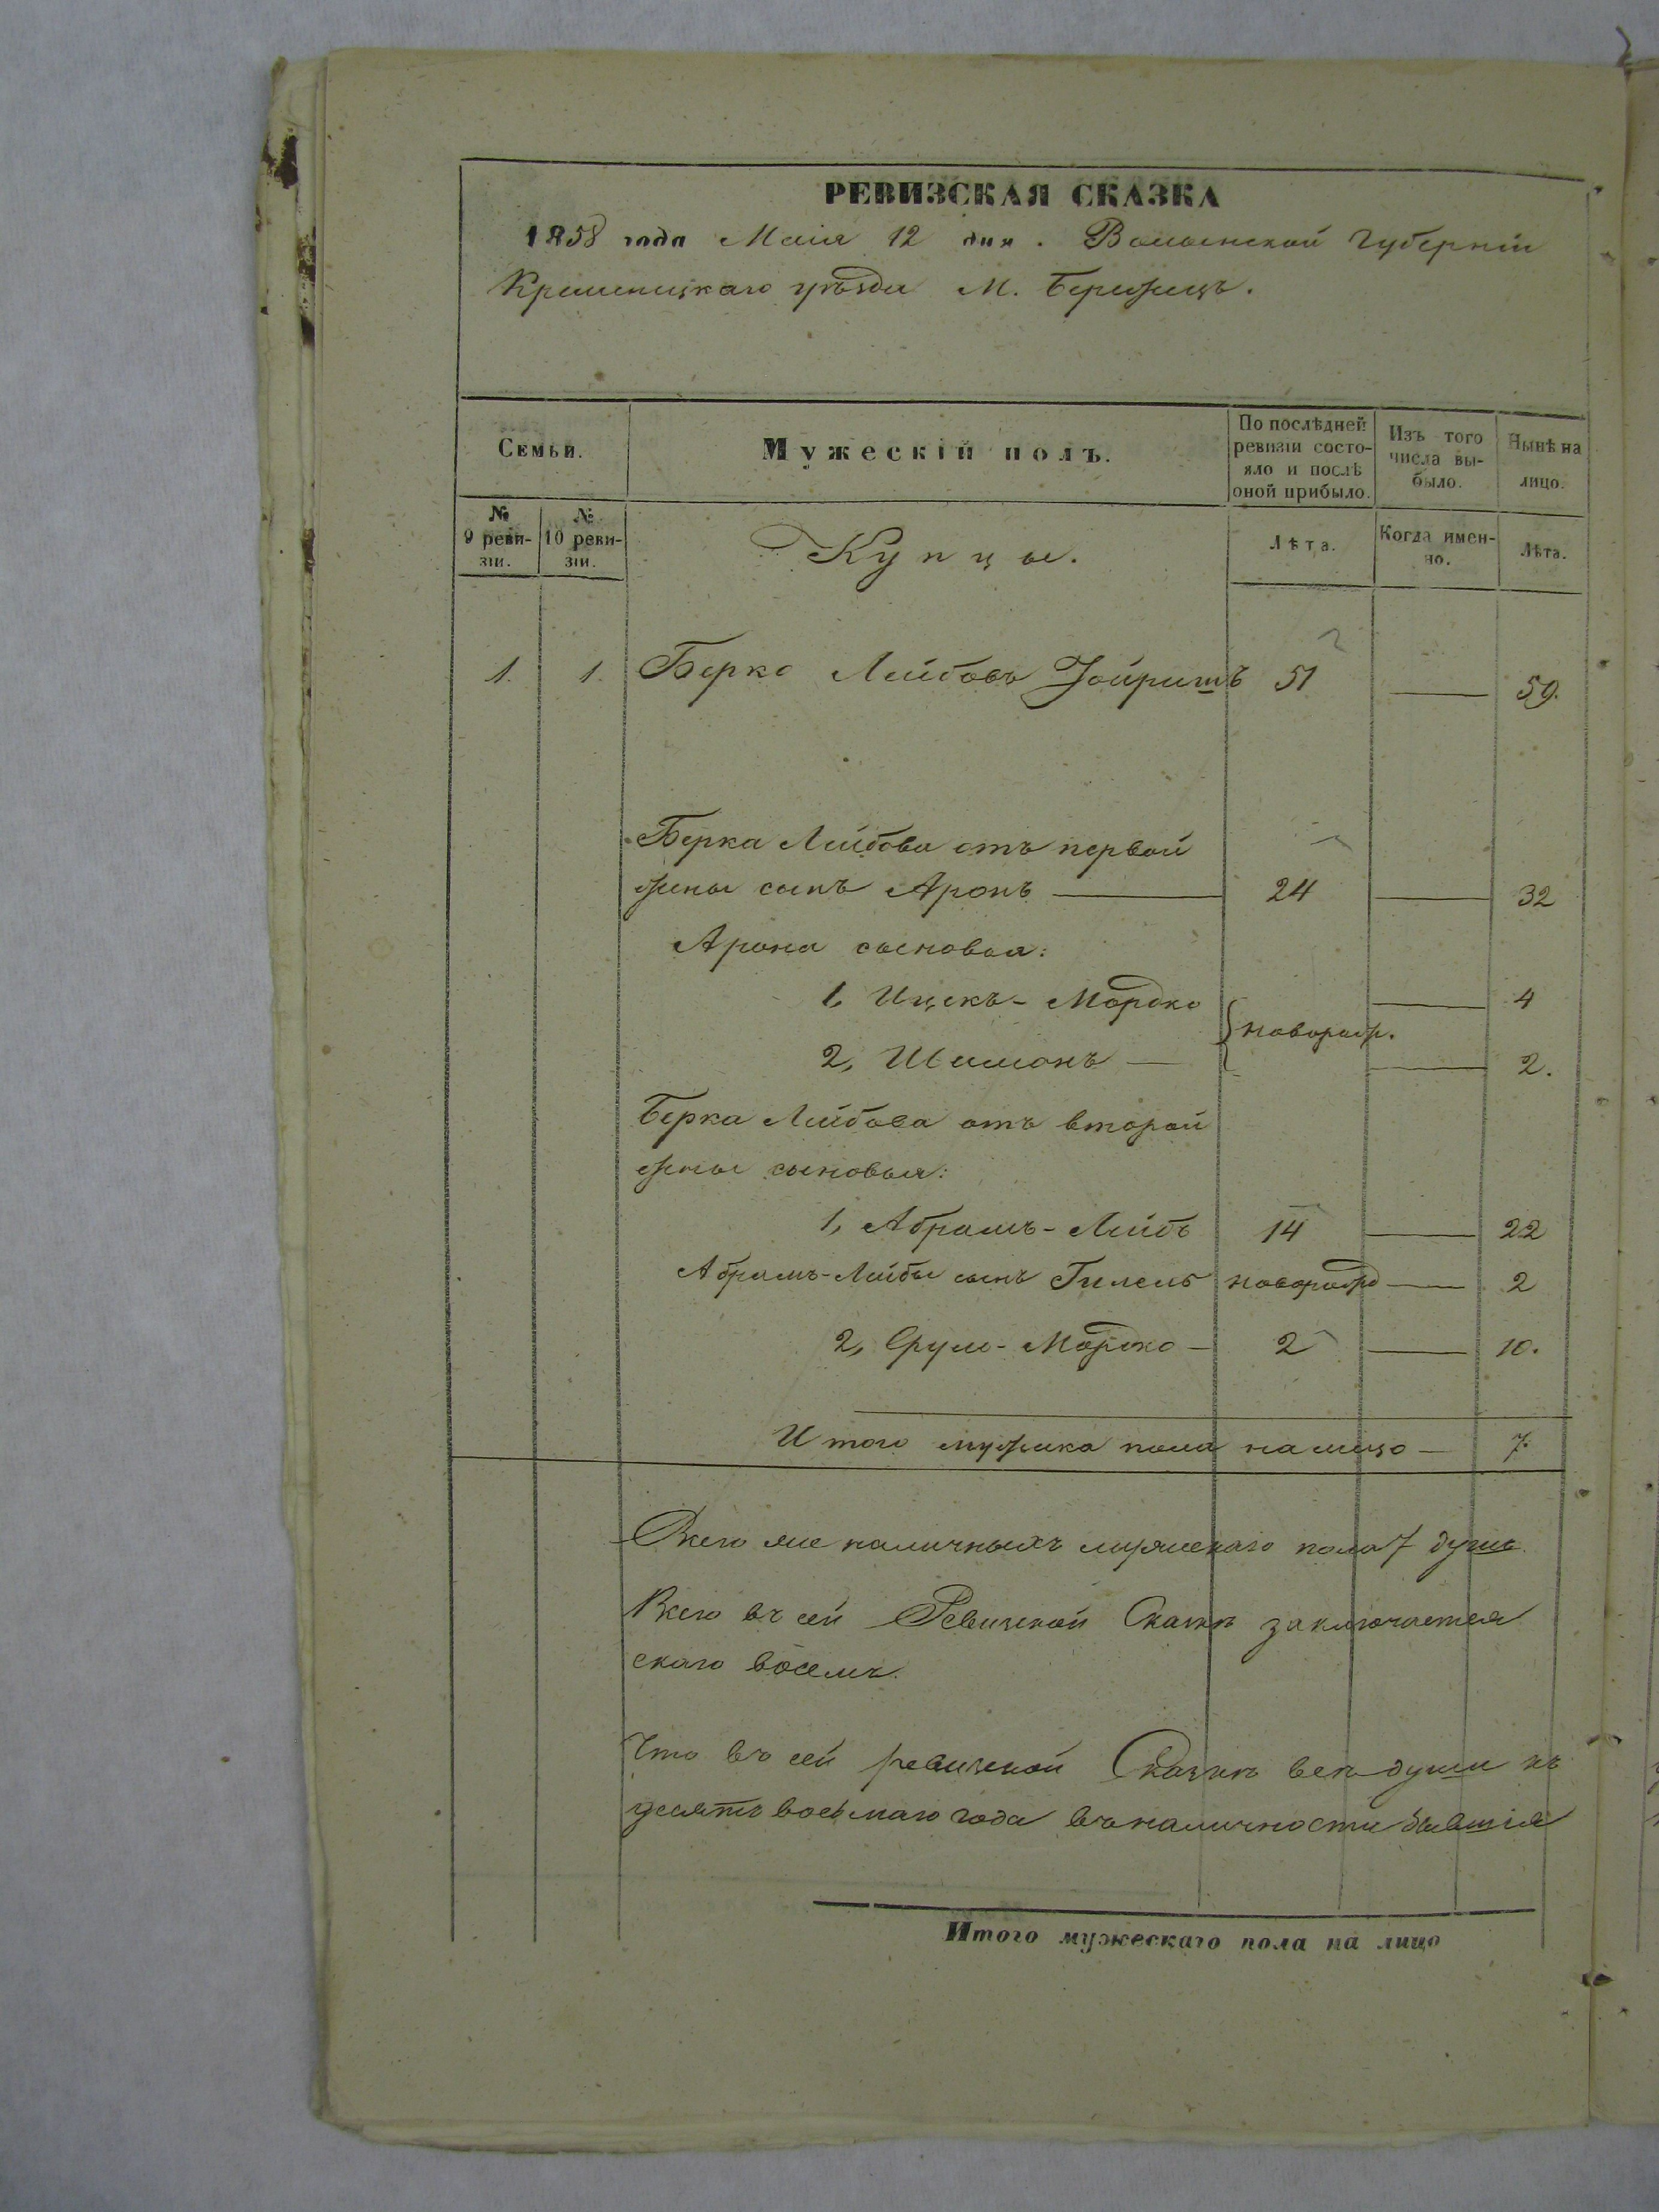 РЕВИЗСКАЯ СКАЗКА
1858 года Маія 12 дня. Волынской Губерніи
Кременецкаго уѣзда М. Бережецъ.
Семьи.
Мужескій полъ.
По послѣдней ревизіи состояло и послѣ оной прибыло.
Изъ того числа выбыло.
Нынѣ на лицо.
№ 9 ревизіи.
№ 10 ревизіи.
Купцы.
Лѣта.
Когда именно.
Лѣта.
1. 1. Берко Лейбовъ 51 — 59.
Берка Лейбова отъ первой
жены сынъ Аронъ — 24 — 32
Арона сыновья:
1, Ицекъ-Мордко — 4
новорож.
2, Шимонъ — — 2.
Берка Лейбова отъ второй
жены сыновья:
1, Абрамъ-Лейбъ 14 — 22
Абрамъ-Лейбы сынъ Гилель новорожд — 2
2, Сруль-Мордко — 2 — 10.
Итого мужеска пола налицо — 7.
Всего же наличныхъ мужескаго пола 7 душъ.
Всего въ сей Ревизской Сказкѣ заключается
скаго восемь.
Что въ сей ревизской Сказкѣ всѣ души къ
десятъ восьмаго года въ наличности бывшія
Итого мужескаго пола на лицо